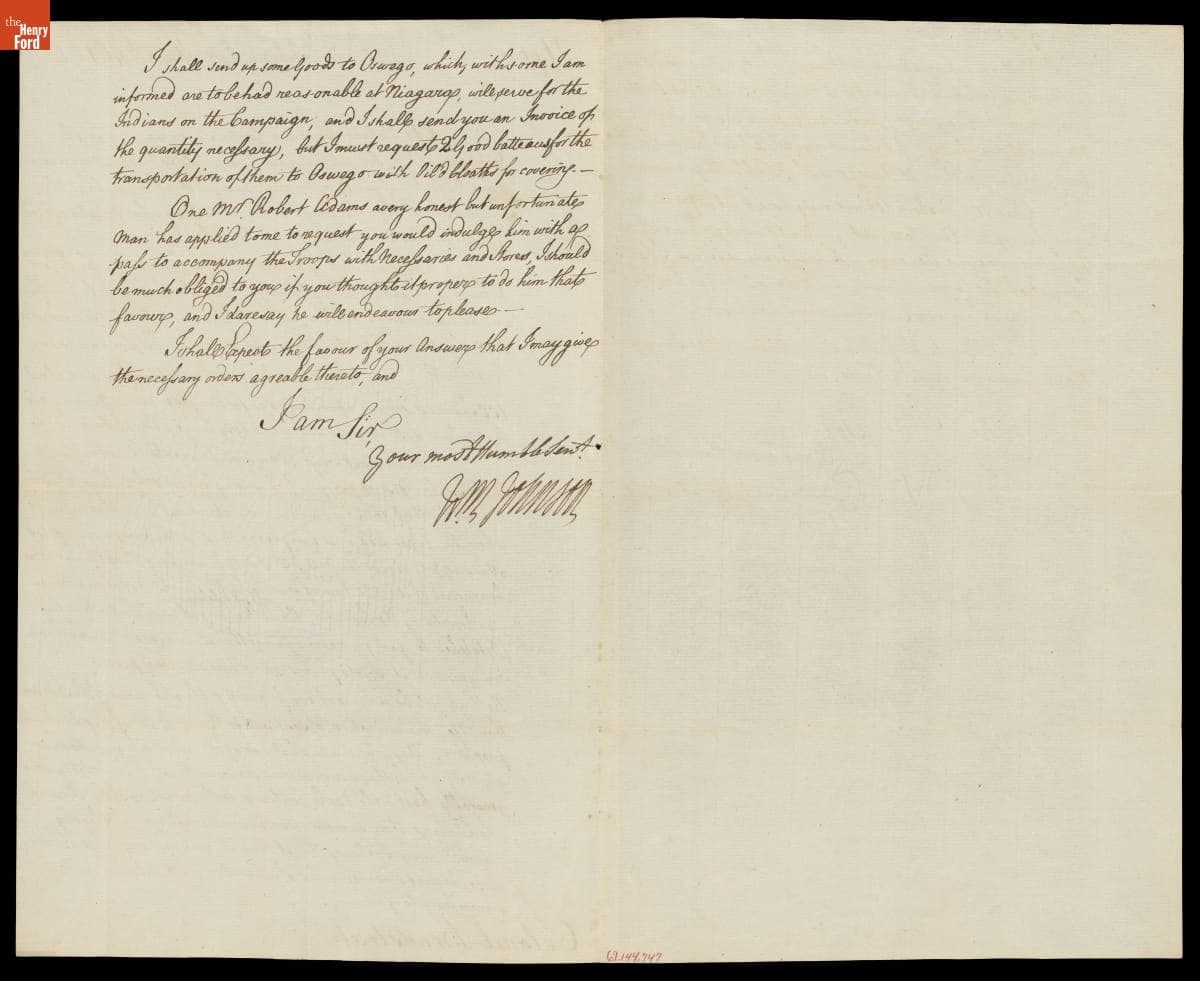 the
Henry
Ford
I shall send up some Goods to Oswego, which, with some I am
informed are to be had reasonable at Niagara, will serve for the
Indians on the Campaign, and I shall send you an Invoice of
the quantity necessary, but I must request 2 Good batteaus for the
transportation of them to Oswego with Oil'd Cloaths for covering. —
One Mr. Robert Adams a very honest but unfortunate
Man has applied to me to request you would indulge him with a
pass to accompany the Troops with Necessaries and Stores, I should
be much obliged to you if you thought it proper to do him that
favour, and I dare say he will endeavour to please. —
I shall Expect the favour of your Answer that I may give
the necessary orders agreable thereto, and
I am Sir,
Your most Humble Servt.
Wm. Johnson
69.144.747